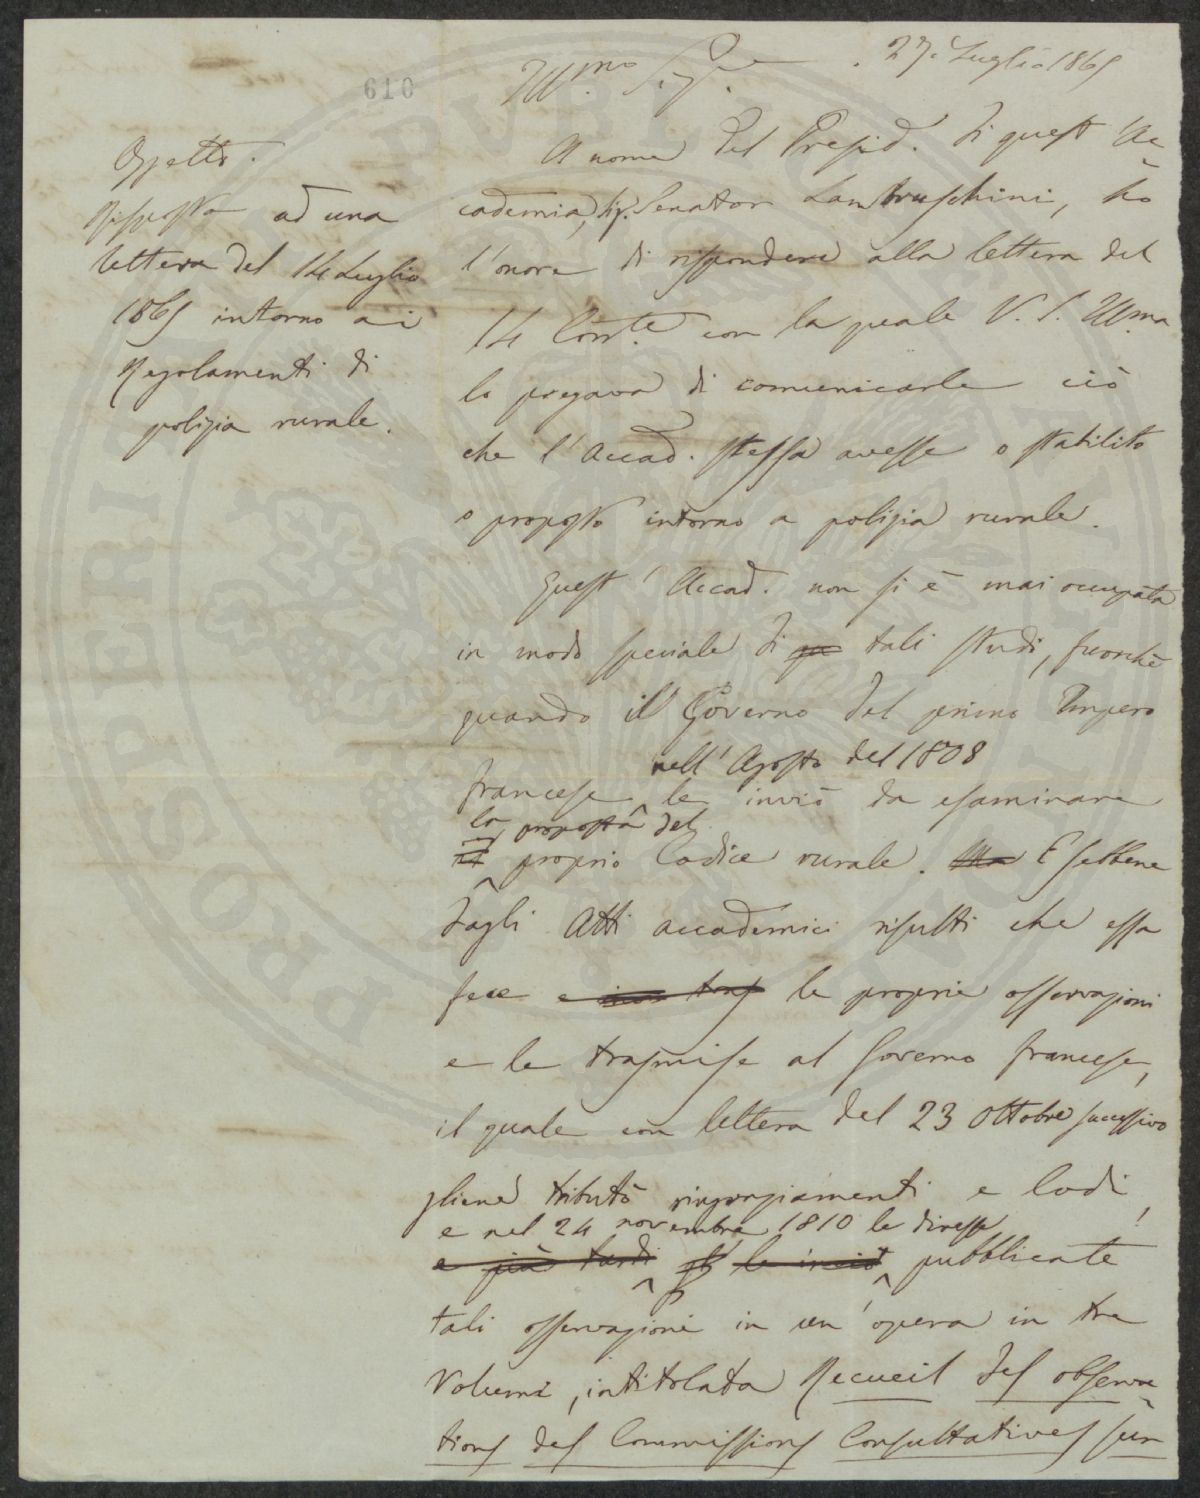 610
Ill.mo Sig.re
27. Luglio 1865
Oggetto.
Risposta ad una
lettera del 14 Luglio
1865 intorno ai
Regolamenti di
polizia rurale.
A nome del Presid. di quest' Ac-
cademia, Sig. Senator Lambruschini, ho
l'onore di rispondere alla lettera del
14 Corr.te con la quale V. S. Ill.ma
lo pregava di comunicarle ciò
che l'Accad. stessa avesse o stabilito
o proposto intorno a polizia rurale.
Quest' Accad. non si è mai occupata
in modo speciale di tali studi, fuorchè
quando il Governo del primo Impero
nell' Agosto del 1808
francese le inviò da esaminare
la proposta del
proprio Codice rurale. Ma E sebbene
dagli Atti accademici risulti che essa
fece e le proprie osservazioni
e le trasmise al Governo francese,
il quale con lettera del 23 Ottobre successivo
gliene tributò ringraziamenti e lodi,
e nel 24 novembre 1810 le diresse
e più tardi le inviò pubblicate
tali osservazioni in un' opera in tre
Volumi, intitolata Recueil des observa-
tions des Commissions Consultatives sur